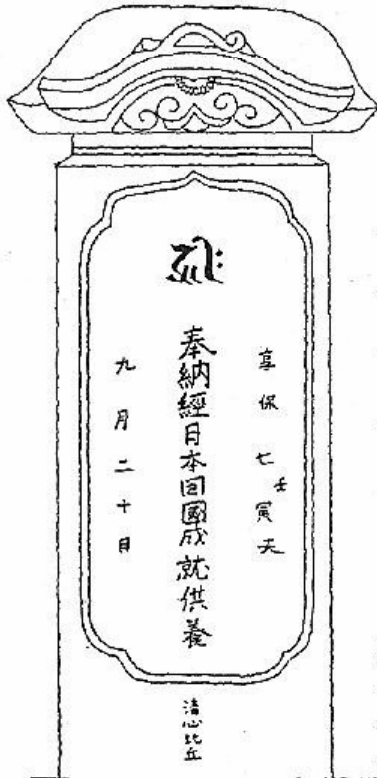 享保七壬寅天
奉納經日本回國成就供養
九月二十日
清心比丘